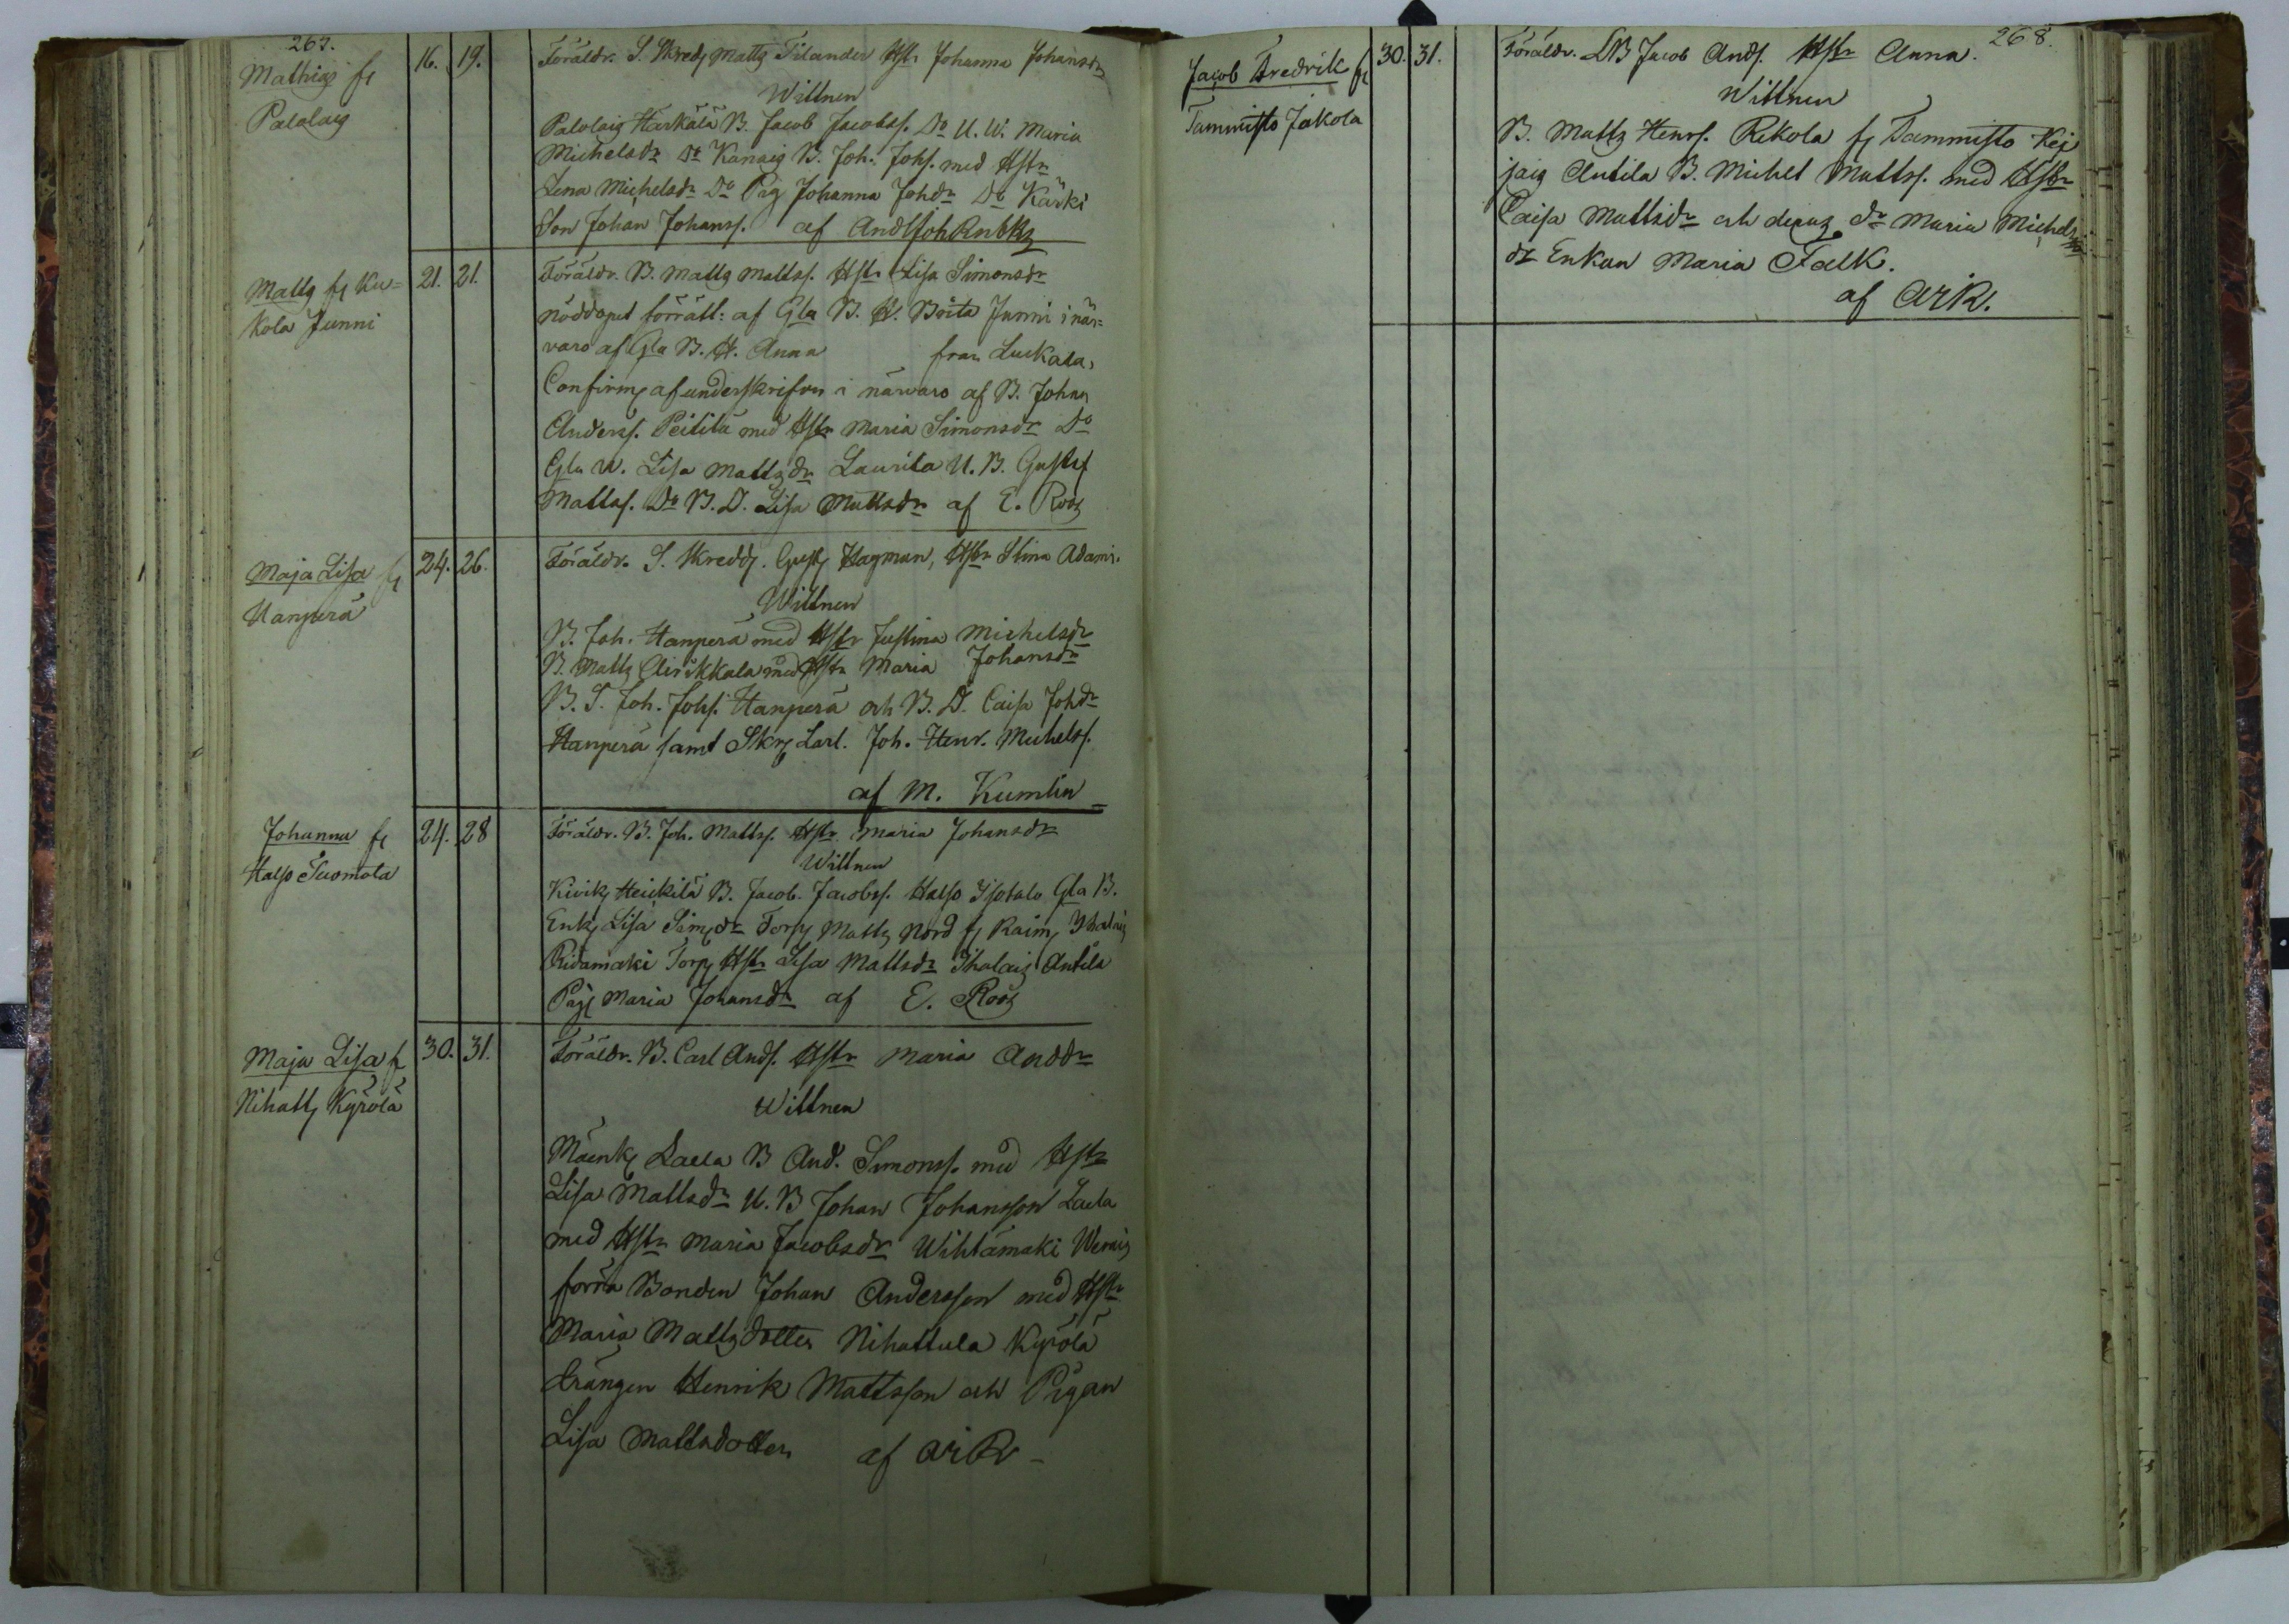 267.
Mathias fr
Palolaig
16. 19.
Föräldr. S. Skredj Matts Tilander Hstr Johanna Johansdr
Wittnen
Palolaig Härkälä B. Jacob Jacobss. Do U. W. Maria
Michelsdr Do Kanaig B. Joh. Johs. med Hstr
Lena Michelsdr Do Pig Johanna Johdr Do Kärki
Son Johan Johanss. af
Matts fr Ku=
kola Junni
21. 21.
Föräldr. B. Matts Mattss. Hstr Lisa Simonsdr
nöddopet förrätt: af Gla B. W. Brita Junni i när=
varo af Gla B. H. Anna från Luukala,
Confirm af underskrifven i närwaro af B. Johan
Anderss. Peitilä med Hstr Maria Simonsdr Do
Gla W. Lisa Mattsdr Laurila U. B. Gustaf
Mattss. Do B. D. Lisa Mattsdr af E. Roos
Maja Lisa fr
Hanperä
24. 26.
Föräldr. S. Skreddj. Gust Hagman, Hstr Stina Adami.
Wittnen
B. Joh. Hanperä med Hstr Justina Michelsdr
B. Matts med Hstr Maria Johansdr
B. S. Joh. Johs. Hanperä och B. D. Caisa Johdr
Hanperä samt Skrj Lärl. Joh. Henr. Michelss.
af M. Kumlin
Johanna fr
Halso Tuomola
24. 28
Föräldr. B. Joh. Mattss. Hstr Maria Johansdr
Wittnen
Kivik Heickilä B. Jacob Jacobss. Halso Isotalo Gla B.
Enk Lisa Simsdr Torp Matts Nord fr Raim
Ridamäki Torp Hstr Lisa Mattsdr Ihalaig Antila
Pig Maria Johansdr af E. Roos
Maja Lisa fr
Nihatt Kyrölä
30. 31.
Föräldr. B. Carl Ands. Hstr Maria Anddr
Wittnen
Mäenk Laula B And. Simonss. med Hstr
Lisa Mattsdr U. B Johan Johansson Laula
med Hstr Maria Jacobsdr Wihtamäki
förra Bonden Johan Andersson med Hstr
Maria Mattsdotter Nihattula Kyrölä
drängen Henrik Mattsson och Pigan
Lisa Mattsdotter af
268.
Jacob Fredrik fr
Tammisto Jakola
30. 31.
Föräldr. LB Jacob Ands. Hstr Anna.
Wittnen
B. Matts Henrs. Rekola fr Tammisto Kej
jaig Antila B. Michel Mattss. med Hstr
Caisa Mattsdr och deras dr Maria Michels
dr Enkan Maria Falk.
af